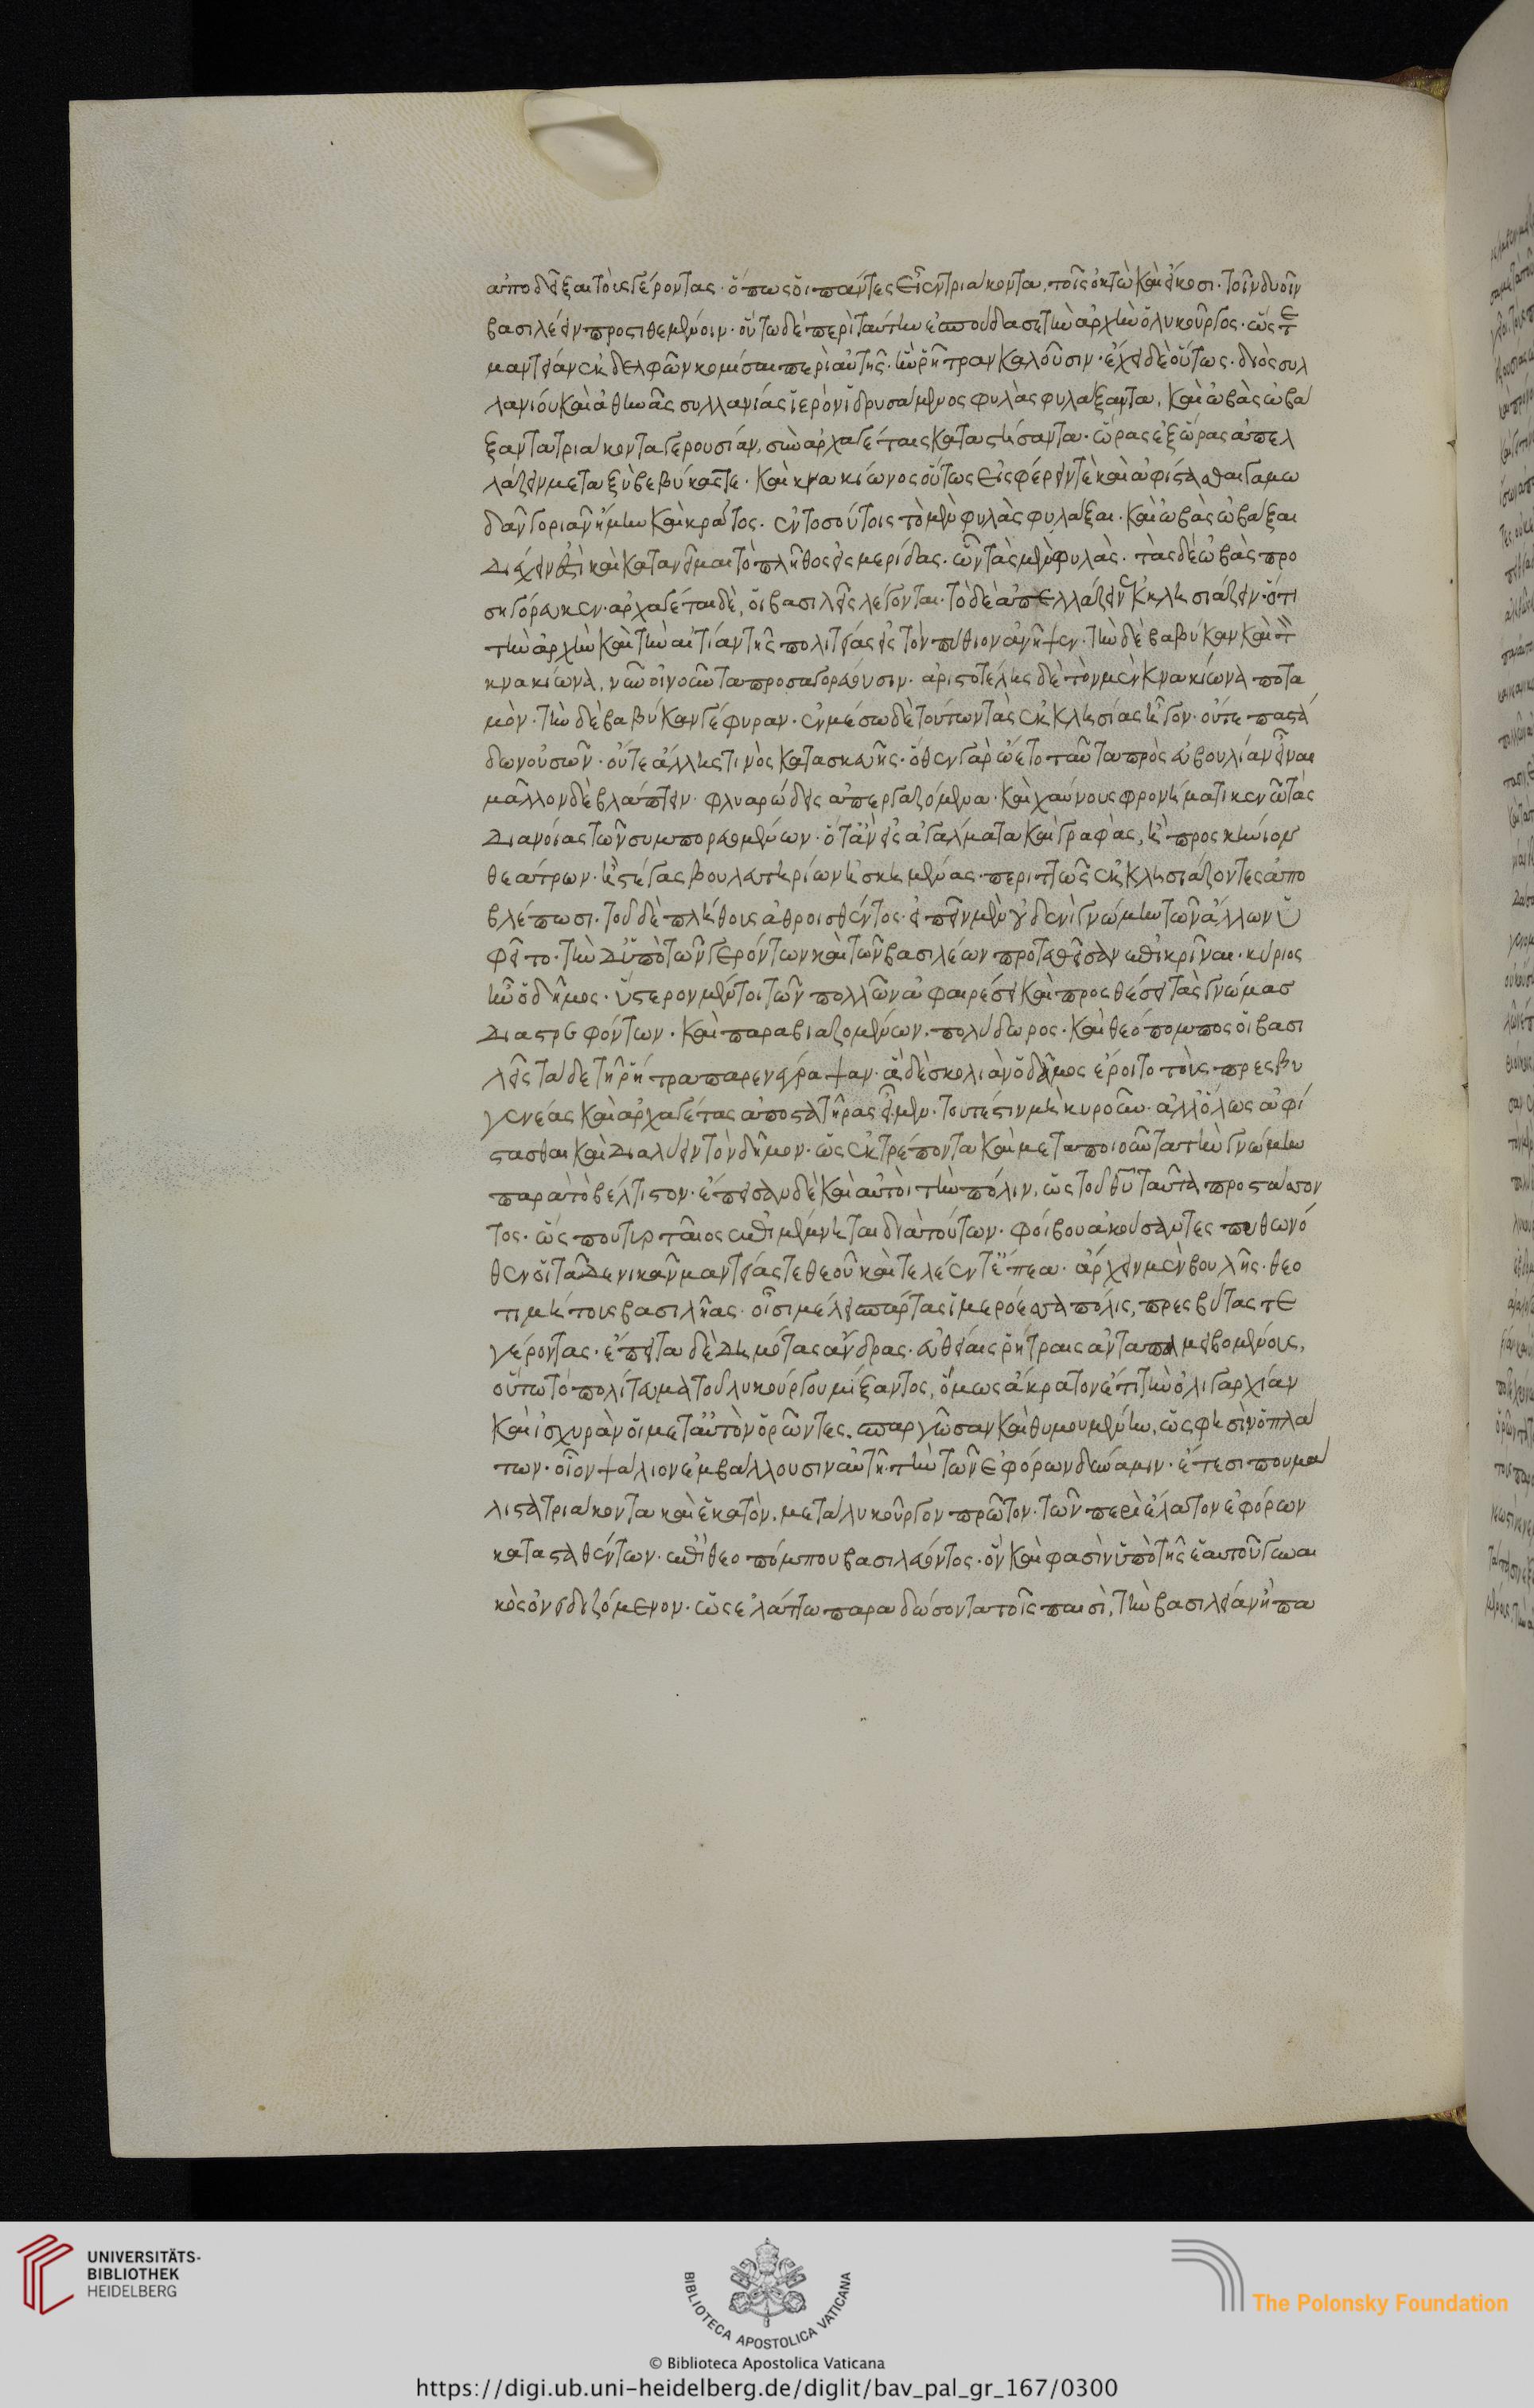 ἀποδεῖξαι τοὺς γέροντας· ὅπως οἱ πάντες εἶεν τριάκοντα, τοῖς ὀκτὼ καὶ εἴκοσι· τοῖν δυοῖν
βασιλέειν προστιθεμένοιν· οὕτω δὲ περὶ ταύτην ἐσπούδασε τὴν ἀρχὴν ὁ λυκοῦργος· ὥστε
μαντείαν ἐκ δελφῶν κομίσαι περὶ αὐτῆς· ἣν ῥήτραν καλοῦσιν· ἔχει δὲ οὕτως· διὸς συλ
λανίου καὶ ἀθηνᾶς συλλανίας ἱερὸν ἱδρυσάμενος φυλὰς φυλάξαντα, καὶ ὠβὰς ὠβά
ξαντα τριάκοντα γερουσίαν, σὺν ἀρχαγέταις καταστήσαντα· ὥρας ἐξ ὥρας ἀπελ
λάζειν μεταξὺ βαβύκας τε· καὶ κνακιώνος οὕτως εἰσφέρειν τὲ καὶ ἀφίστασθαι γαμω
δᾶν γοριᾶν ἤμην καὶ κράτος· ἐν τοσούτοις τὸ μὲν φυλὰς φυλάξαι· καὶ ὠβὰς ὠβάξαι
διέχειν ἐστὶ καὶ κατανεῖμαι τὸ πλῆθος εἰς μερίδας· ὧν τὰς μὲν φυλὰς· τὰς δὲ ὠβὰς προ
σηγόρευκεν· ἀρχαγέται δὲ, οἱ βασιλεῖς λέγονται· τὸ δὲ ἀπελλάζειν ἐκκλησιάζειν· ὅτι
τὴν ἀρχὴν καὶ τὴν αἰτίαν τῆς πολιτείας εἰς τὸν πύθιον ἀνῆψεν· τὴν δὲ βαβύκαν καὶ τὸν
κνακιῶνα, νῦν οἰνοῦντα προσαγορεύουσιν· ἀριστοτέλης δὲ τὸν μὲν κνακιῶνα ποτα
μὸν· τὴν δὲ βαβύκαν γέφυραν· ἐν μέσω δὲ τούτων τὰς ἐκκλησίας ἦγον· οὔτε παστά
δων οὐσῶν· οὔτε ἄλλης τινὸς κατασκευῆς· ὅθεν γὰρ ὤετο ταῦτα πρὸς εὐβουλίαν εἶναι
μᾶλλον δὲ βλάπτειν· φλυαρώδεις ἀπεργαζόμενα· καὶ χαύνους φρονήματι κενῶ τὰς
διανοίας τῶν συμπορευομένων· ὅταν εἰς ἀγάλματα καὶ γραφὰς, ἢ προσκήνιον
θεάτρων· ἢ στέγας βουλευτηρίων ἠσκημένας· περιττῶς ἐκκλησιάζοντες ἀπο
βλέπωσι· τοῦ δὲ πλήθους ἀθροισθέντος· εἰπεῖν μὲν οὐδενὶ γνώμην τῶν ἄλλων ὑ
φεῖτο· τὴν δ' ὑπὸ τῶν γερόντων καὶ τῶν βασιλέων προτεθεῖσαν ἐπικρῖναι· κύριος
ἦν ὁ δῆμος· ὕστερον μέντοι τῶν πολλῶν ἀφαιρέσει καὶ προσθέσει τὰς γνώμας
διαστρεφόντων· καὶ παραβιαζομένων· πολύδωρος· καὶ θεόπομπος οἱ βασι
λεῖς τάδε τῆ ῥήτρα παρενέγραψαν· ἂν δὲ σκολιὰν ὁ δῆμος ἕροιτο τοὺς πρεσβυ
γενέας καὶ ἀρχαγέτας ἀποστατῆρας εἶμεν· τουτέστιν μὴ κυροῦν· ἀλλ' ὅλως ἀφί
στασθαι καὶ διαλύειν τὸν δῆμον· ὡς ἐκτρέποντα καὶ μεταποιοῦντα τὴν γνώμην
παρὰ τὸ βέλτιστον· ἔπεισαν δὲ καὶ αὐτοὶ τὴν πόλιν, ὡς τοῦ θεοῦ ταῦτα προστάσσον
τος· ὥς που τυρταῖος ἐπιμέμνηται διὰ τούτων· φοίβου ἀκούσαντες πυθωνό
θεν οἱ τάδε νικᾶν μαντείας τε θεοῦ καὶ τελέεντ' ἔπεα· ἄρχειν μὲν βουλῆς· θεο
τιμήτους βασιλῆας· οἷσι μέλει σπάρτας ἱμερόεσσα πόλις, πρεσβύτας τε
γέροντας· ἔπειτα δὲ δημότας ἄνδρας· εὐθείαις ῥήτραις ἀνταπαμειβομένους,
οὕτω τὸ πολίτευμα τοῦ λυκούργου μίξαντος, ὅμως ἄκρατον ἔτι τὴν ὀλιγαρχίαν
καὶ ἰσχυρὰν οἱ μετ' αὐτὸν ὁρῶντες, σπαργῶσαν καὶ θυμουμένην, ὥς φησὶν ὁ πλά
των· οἷον ψάλιον ἐμβάλλουσιν αὐτῆ τὴν τῶν ἐφόρων δύναμιν· ἔτεσί που μά
λιστα τριάκοντα καὶ ἑκατὸν, μετὰ λυκοῦργον πρῶτον· τῶν περὶ ἔλατον ἐφόρων
κατασταθέντων· ἐπὶ θεοπόμπου βασιλεύοντος· ὃν καὶ φασὶν ὑπὸ τῆς ἑαυτοῦ γυναι
κὸς ὀνειδιζόμενον· ὡς ἐλάττω παραδώσοντα τοῖς παισὶ, τὴν βασιλείαν ἢ πα
UNIVERSITÄTS-
BIBLIOTHEK
HEIDELBERG
BIBLIOTECA APOSTOLICA VATICANA
The Polonsky Foundation
© Biblioteca Apostolica Vaticana
https://digi.ub.uni-heidelberg.de/diglit/bav_pal_gr_167/0300